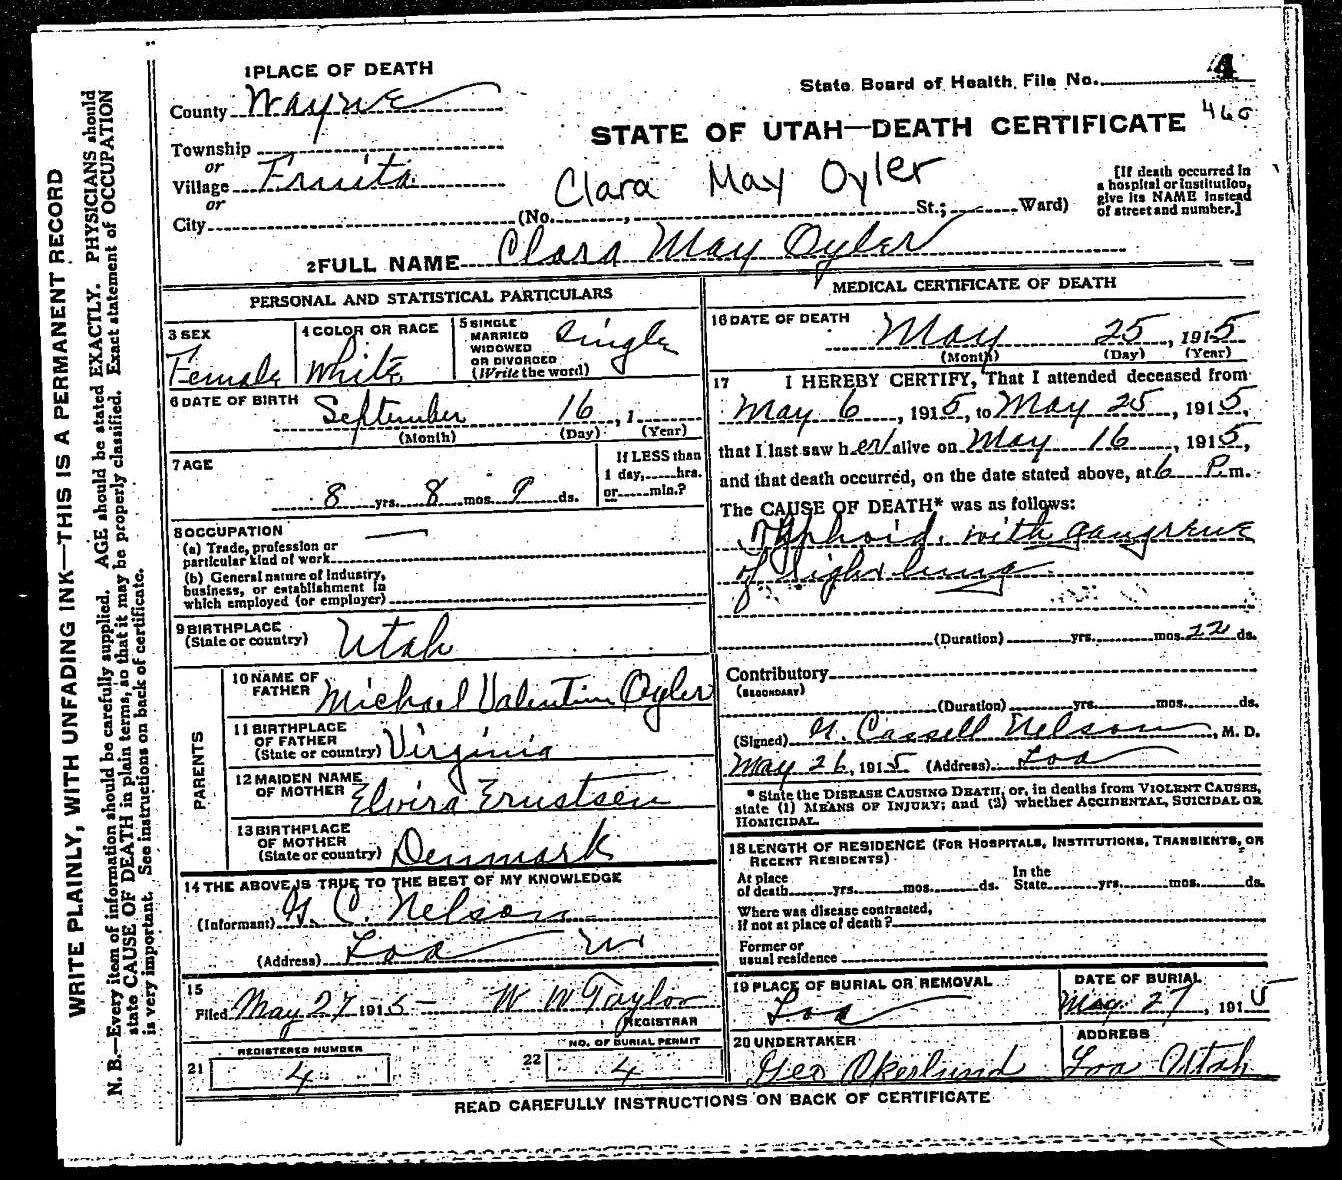 WRITE PLAINLY, WITH UNFADING INK—THIS IS A PERMANENT RECORD
N. B.—Every item of information should be carefully supplied. AGE should be stated EXACTLY. PHYSICIANS should
state CAUSE OF DEATH in plain terms, so that it may be properly classified. Exact statement of OCCUPATION
is very important. See instructions on back of certificate.
1 PLACE OF DEATH
State Board of Health File No. 4
County Wayne
460
STATE OF UTAH—DEATH CERTIFICATE
Township
or
Village Fruita
Clara May Oyler
[If death occurred in
a hospital or institution,
give its NAME instead
of street and number.]
or
City (No. , St.; Ward)
2 FULL NAME Clara May Oyler
PERSONAL AND STATISTICAL PARTICULARS
3 SEX
Female
4 COLOR OR RACE
White
5 SINGLE
MARRIED
WIDOWED
OR DIVORCED
(Write the word)
Single
6 DATE OF BIRTH
September 16, 1
(Month) (Day) (Year)
7 AGE
8 yrs. 8 mos. 9 ds.
If LESS than
1 day, hrs.
or min.?
8 OCCUPATION
(a) Trade, profession or
particular kind of work
(b) General nature of Industry,
business, or establishment in
which employed (or employer)
9 BIRTHPLACE
(State or country) Utah
PARENTS
10 NAME OF
FATHER Michael Valentine Oyler
11 BIRTHPLACE
OF FATHER
(State or country) Virginia
12 MAIDEN NAME
OF MOTHER Elvira Ernstsen
13 BIRTHPLACE
OF MOTHER
(State or country) Denmark
14 THE ABOVE IS TRUE TO THE BEST OF MY KNOWLEDGE
(Informant) G. C. Nelson
(Address) Loa
15
Filed May 27 1915 W W Taylor
REGISTRAR
21 REGISTERED NUMBER
4
22 NO. OF BURIAL PERMIT
4
MEDICAL CERTIFICATE OF DEATH
16 DATE OF DEATH
May 25, 1915
(Month) (Day) (Year)
17 I HEREBY CERTIFY, That I attended deceased from
May 6, 1915, to May 25, 1915,
that I last saw her alive on May 16, 1915,
and that death occurred, on the date stated above, at 6 P.m.
The CAUSE OF DEATH* was as follows:
Typhoid, with gangrene
of right lung
(Duration) yrs. mos. 22 ds.
Contributory
(SECONDARY)
(Duration) yrs. mos. ds.
(Signed) G. Cassell Nelson, M. D.
May 26, 1915 (Address) Loa
* State the DISEASE CAUSING DEATH, or, in deaths from VIOLENT CAUSES,
state (1) MEANS OF INJURY; and (2) whether ACCIDENTAL, SUICIDAL OR
HOMICIDAL.
18 LENGTH OF RESIDENCE (FOR HOSPITALS, INSTITUTIONS, TRANSIENTS, OR
RECENT RESIDENTS)
At place
of death yrs. mos. ds.
In the
State yrs. mos. ds.
Where was disease contracted,
if not at place of death?
Former or
usual residence
19 PLACE OF BURIAL OR REMOVAL
Loa
DATE OF BURIAL
May 27, 1915
20 UNDERTAKER
Geo Okerlund
ADDRESS
Loa Utah
READ CAREFULLY INSTRUCTIONS ON BACK OF CERTIFICATE